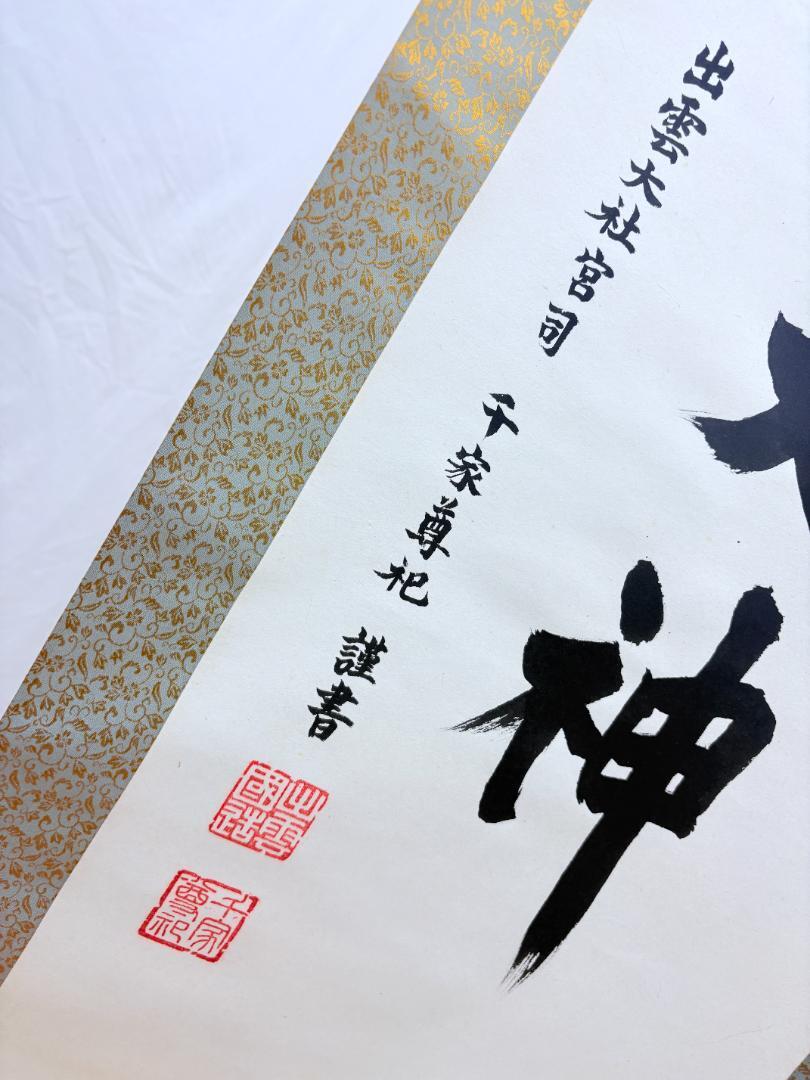 大神
出雲大社宮司 千家尊祀 謹書
出雲國造
千家尊祀